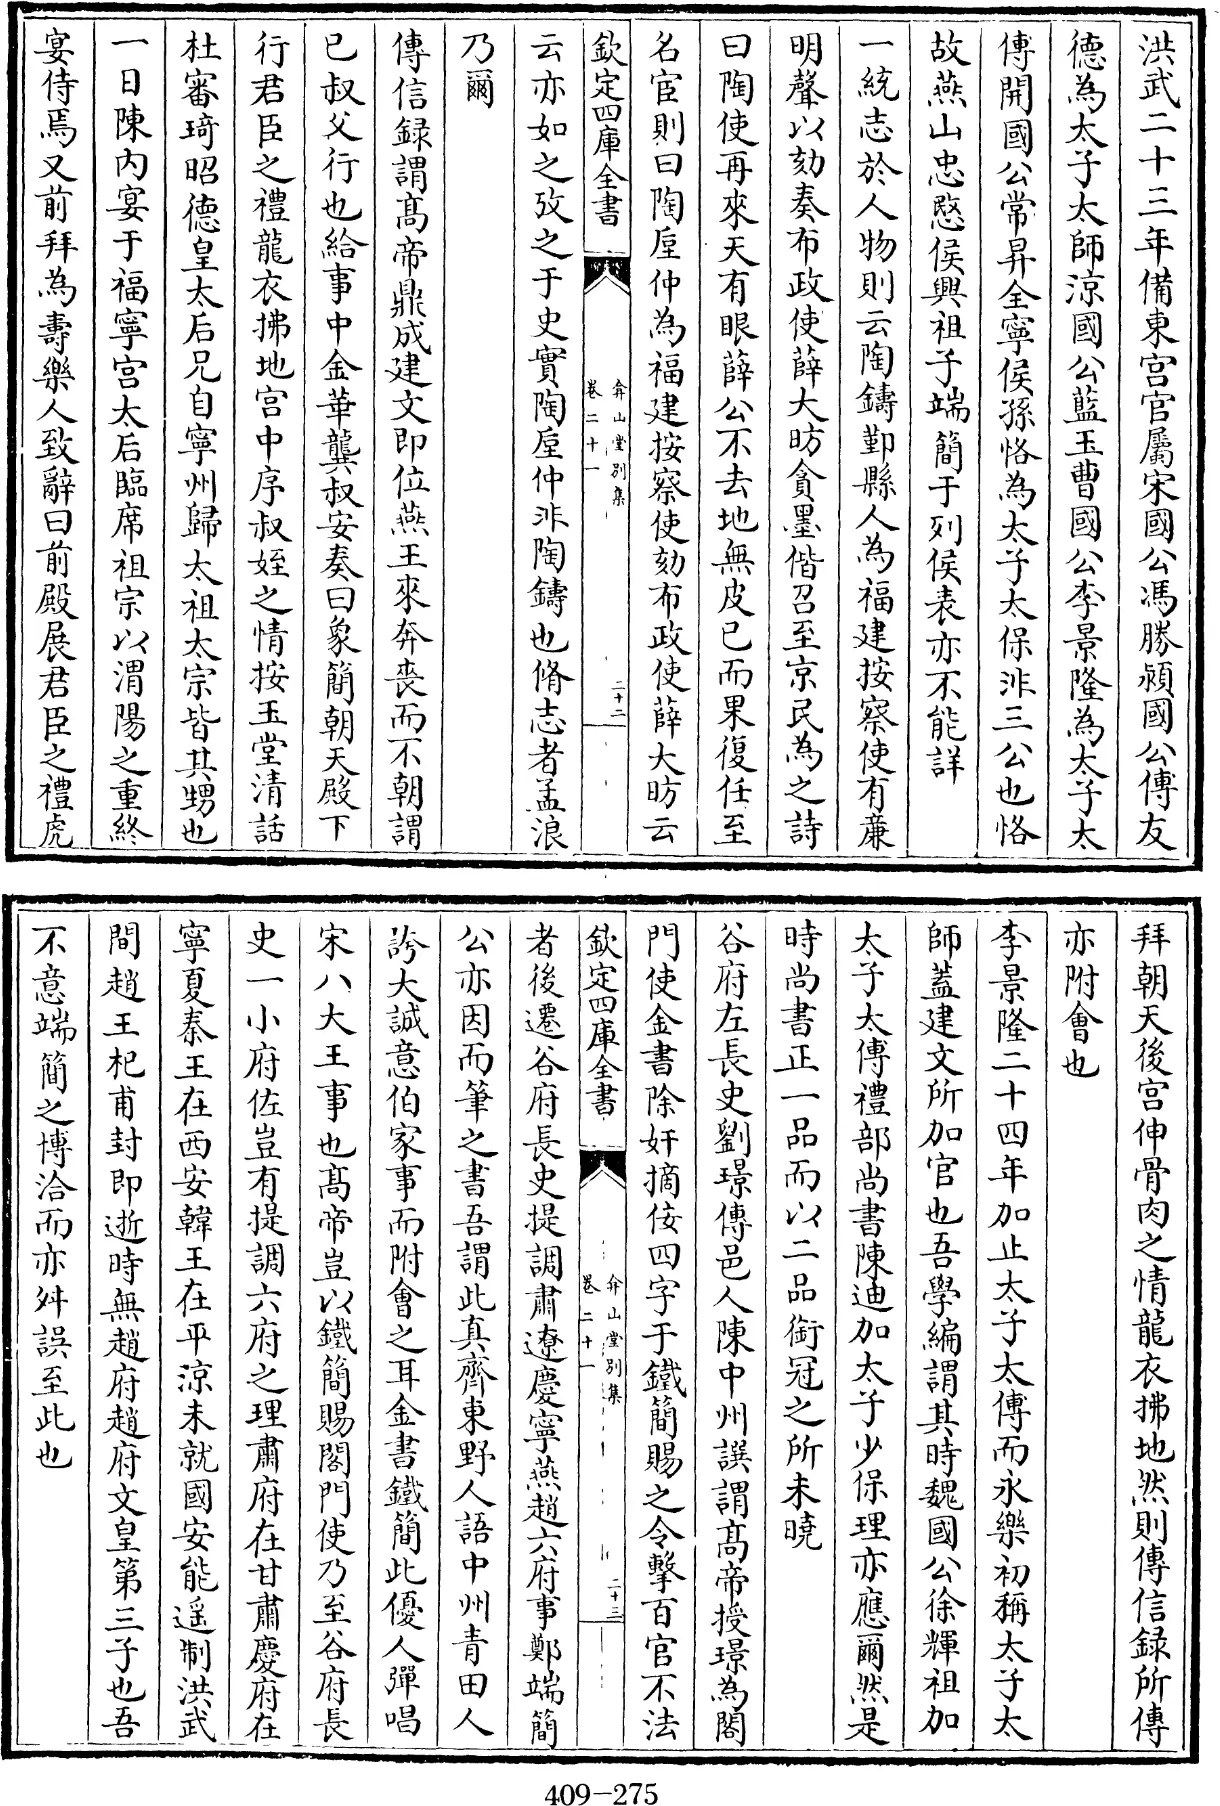 洪武二十三年備東宫官屬宋國公馮勝潁國公傅友
德為太子太師涼國公藍玉曹國公李景隆為太子太
傅開國公常昇全寧侯孫恪為太子太保非三公也恪
故燕山忠愍侯興祖子端簡于列侯表亦不能詳
一統志於人物則云陶鑄鄞縣人為福建按察使有亷
明聲以劾奏布政使薛大昉貪墨偕召至京民為之詩
曰陶使再來天有眼薛公不去地無皮已而果復任至
名宦則曰陶垕仲為福建按察使劾布政使薛大昉云
欽定四庫全書
弇山堂别集
卷二十一
二十二
云亦如之攷之于史實陶垕仲非陶鑄也脩志者孟浪
乃爾
傳信録謂髙帝鼎成建文即位燕王來奔喪而不朝謂
已叔父行也給事中金華龔叔安奏曰象簡朝天殿下
行君臣之禮龍衣拂地宫中序叔姪之情按玉堂清話
杜審琦昭德皇太后兄自寧州歸太祖太宗皆其甥也
一日陳内宴于福寧宫太后臨席祖宗以渭陽之重終
宴侍焉又前拜為壽樂人致辭曰前殿展君臣之禮虎
拜朝天後宫伸骨肉之情龍衣拂地然則傳信録所傳
亦附會也
李景隆二十四年加止太子太傅而永樂初稱太子太
師蓋建文所加官也吾學編謂其時魏國公徐輝祖加
太子太傅禮部尚書陳迪加太子少保理亦應爾然是
時尚書正一品而以二品銜冠之所未曉
谷府左長史劉璟傳邑人陳中州譔謂髙帝授璟為閣
門使金書除奸摘佞四字于鐵簡賜之令擊百官不法
欽定四庫全書
弇山堂别集
卷二十一
二十三
者後遷谷府長史提調肅遼慶寧燕趙六府事鄭端簡
公亦因而筆之書吾謂此真齊東野人語中州青田人
誇大誠意伯家事而附會之耳金書鐵簡此優人彈唱
宋八大王事也髙帝豈以鐵簡賜閣門使乃至谷府長
史一小府佐豈有提調六府之理肅府在甘肅慶府在
寧夏秦王在西安韓王在平涼未就國安能遥制洪武
間趙王杞甫封即逝時無趙府趙府文皇第三子也吾
不意端簡之博洽而亦舛誤至此也
409-275